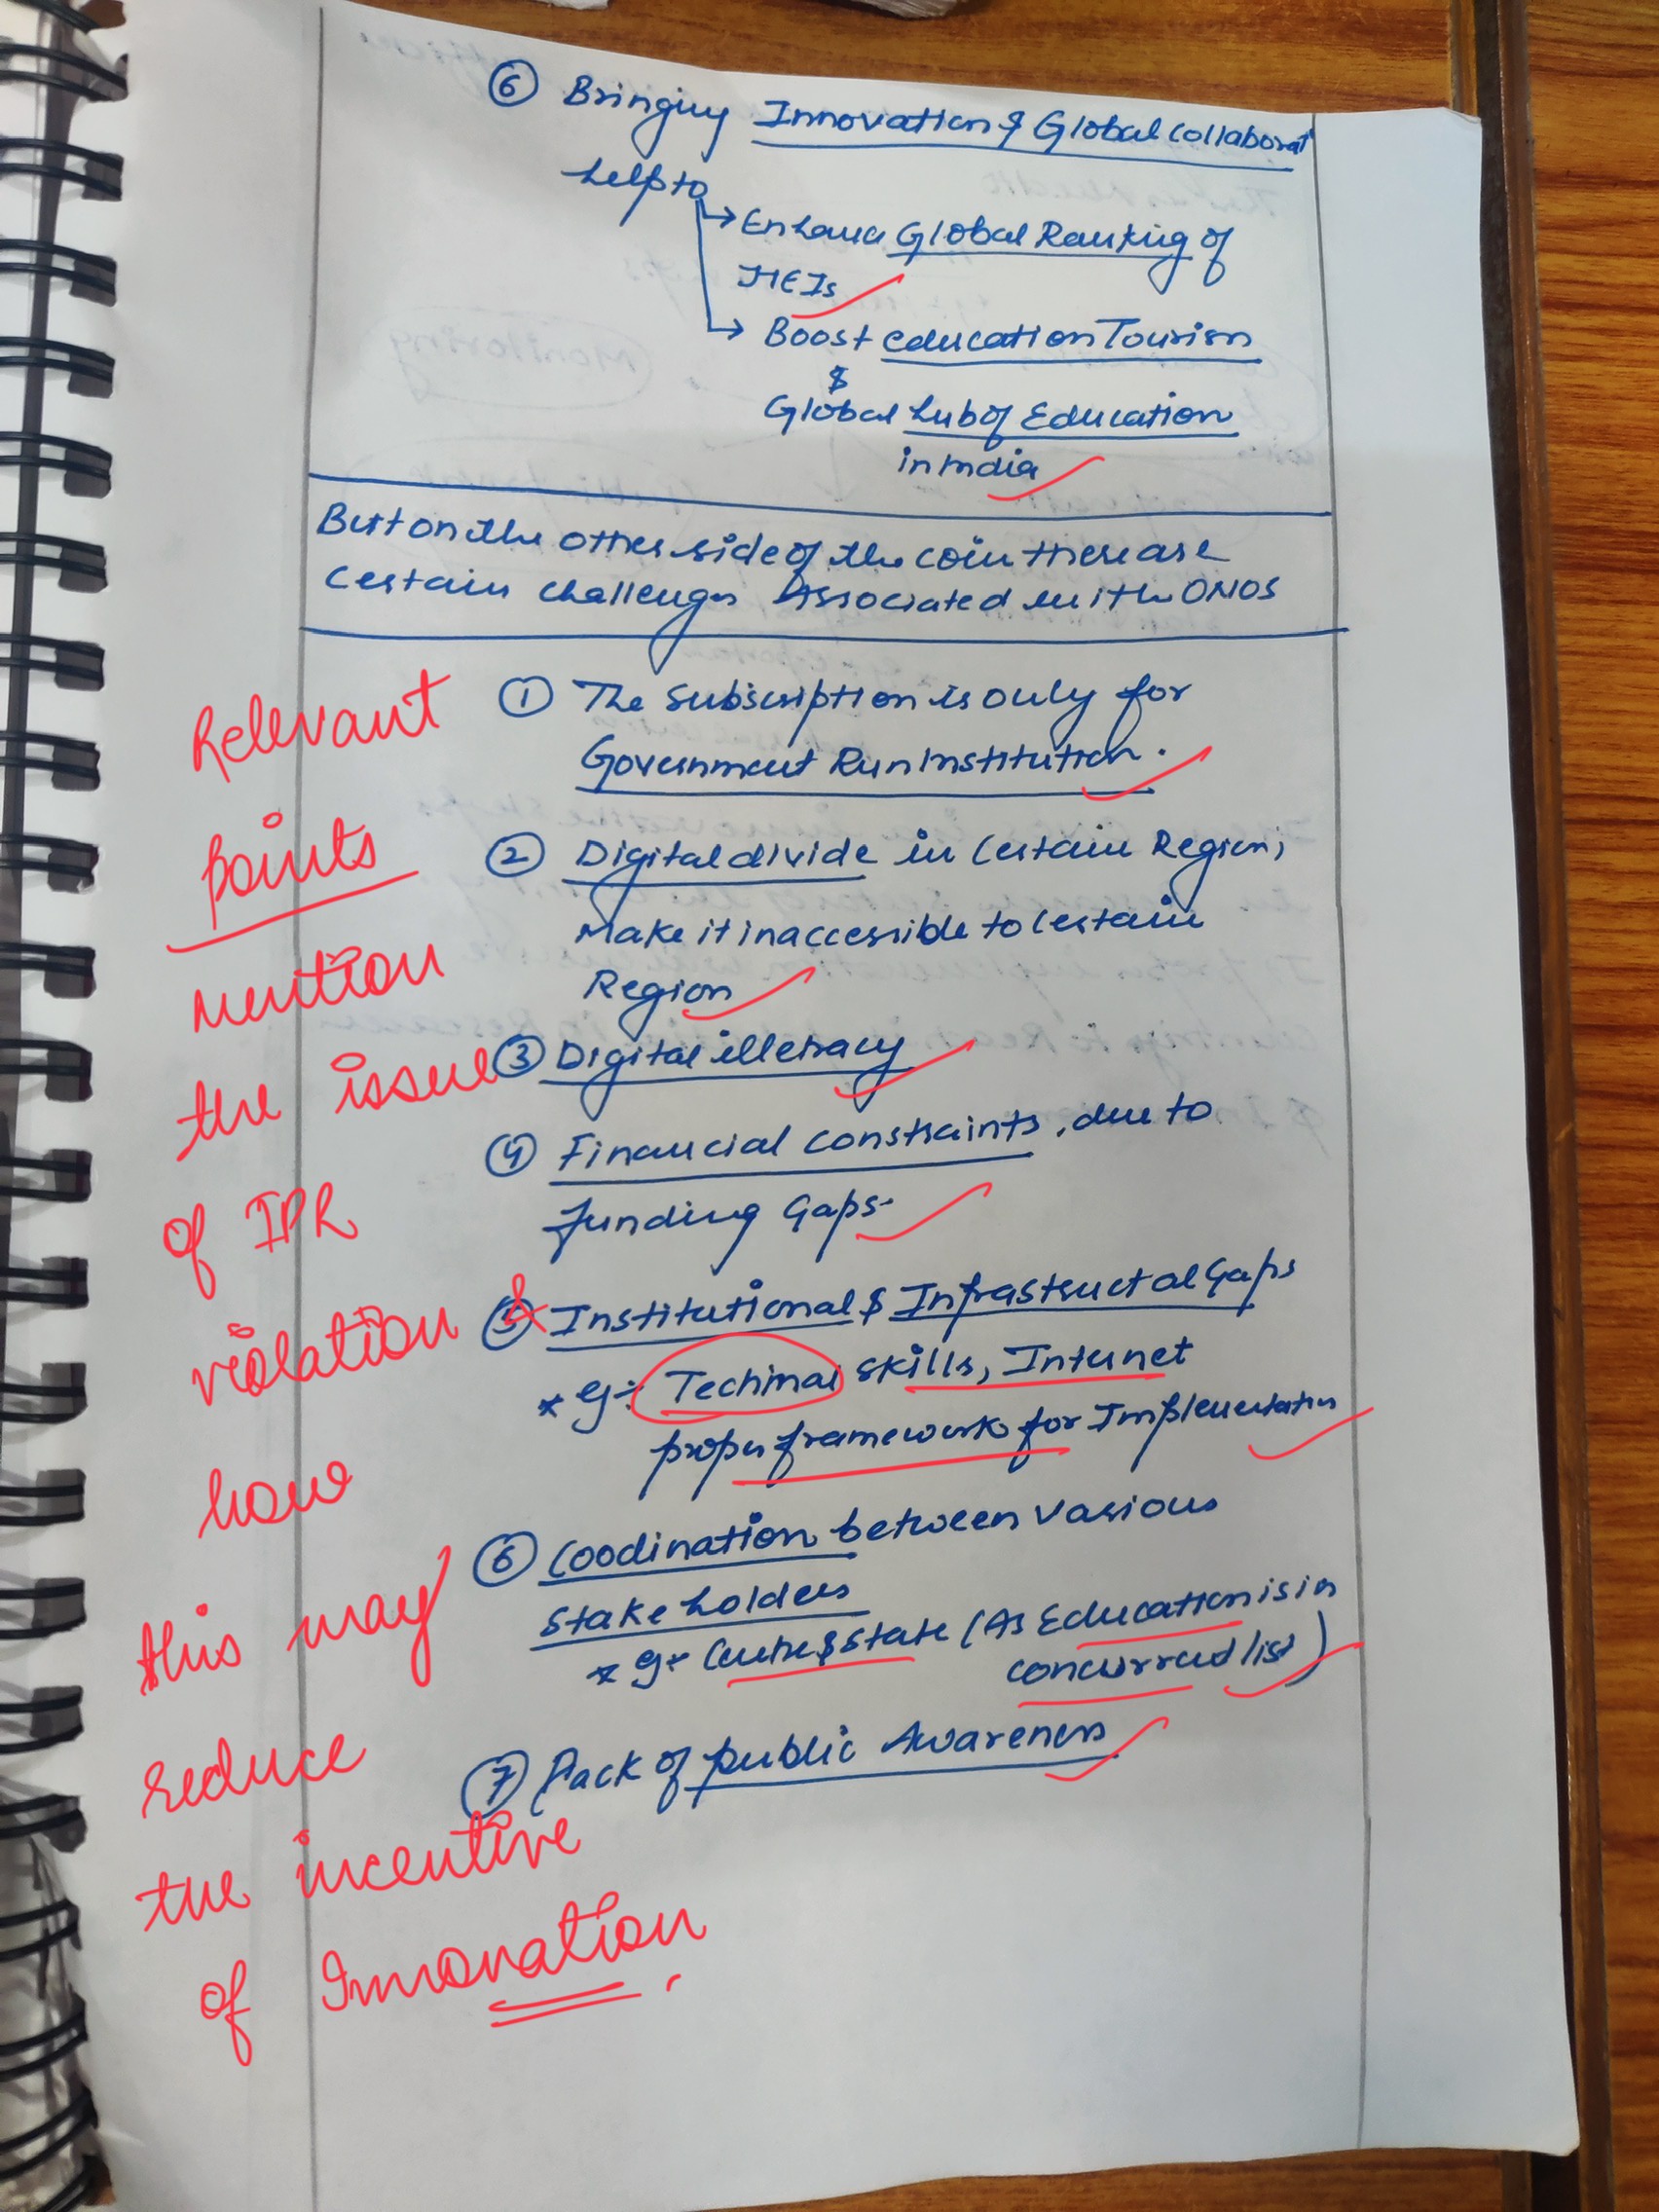 ⑥ Bringing Innovation & Global Collaborat
help to
→ Enhance Global Ranking of
HEIs
→ Boost education Tourism
&
Global hub of Education
in India
But on the other side of the coin there are
certain challenges Associated with ONOS
① The Subscription is only for
Government Run Institution.
② Digital divide in certain Region,
Make it inaccessible to certain
Region
③ Digital illetracy
④ Financial constraints, due to
funding Gaps.
⑤ Institutional & Infrastructal Gaps
*eg:- Techinal skills, Internet
proper framework for Implementation
⑥ Coodination between various
Stake holders
*eg:- Centre & State (As Education is in
concurrent list)
⑦ Lack of public Awareness
Relevant
points
mention
the issue
of IPR
violation &
how
this may
reduce
the incentive
of Innovation.
Monitoring